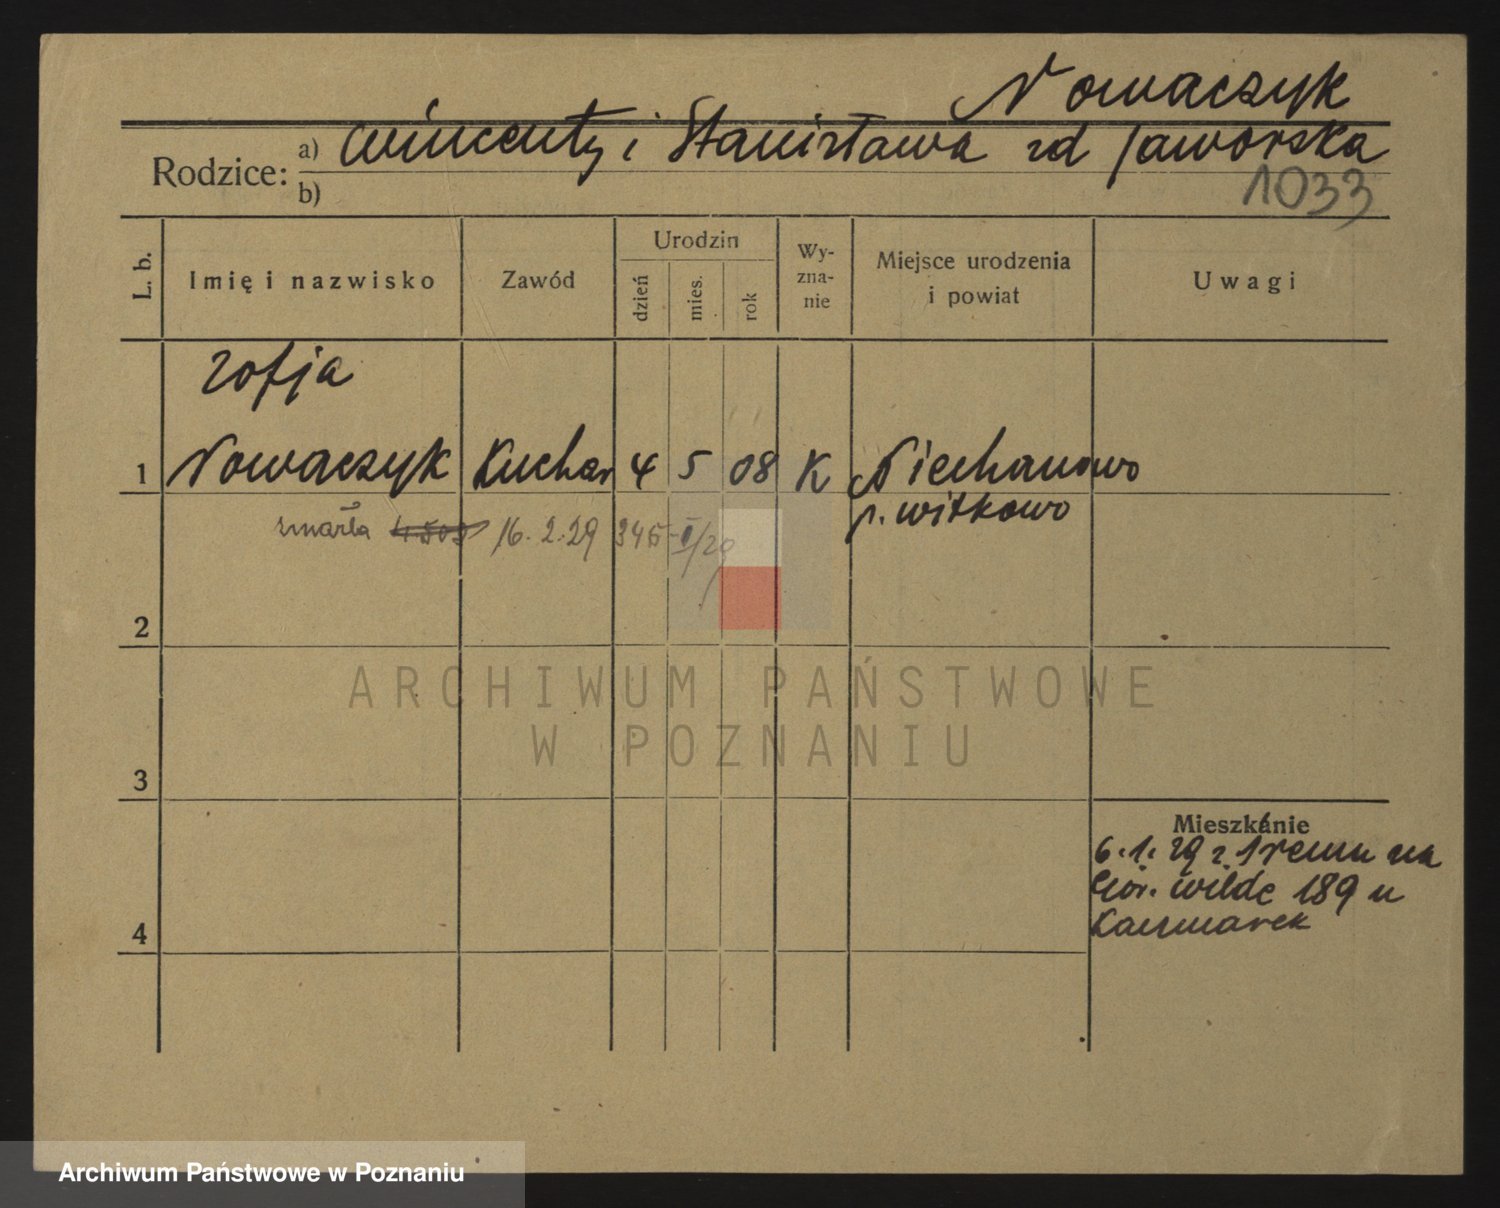 Nowaczyk
Rodzice: a) Wincenty i Stanisława zd Jaworska
b)
1033
L. b. Imię i nazwisko Zawód Urodzin dzień mies. rok Wy-zna-nie Miejsce urodzenia i powiat Uwagi
Zofja
1 Nowaczyk Kuchar 4 5 08 K Niechanowo
p. Witkowo
zmarła 16.2.29 345 II/29
2
ARCHIWUM PAŃSTWOWE
W POZNANIU
3
Mieszkanie
6.1.29 z Śremu na
Gór. Wilde 189 u
Kaczmarek
4
Archiwum Państwowe w Poznaniu